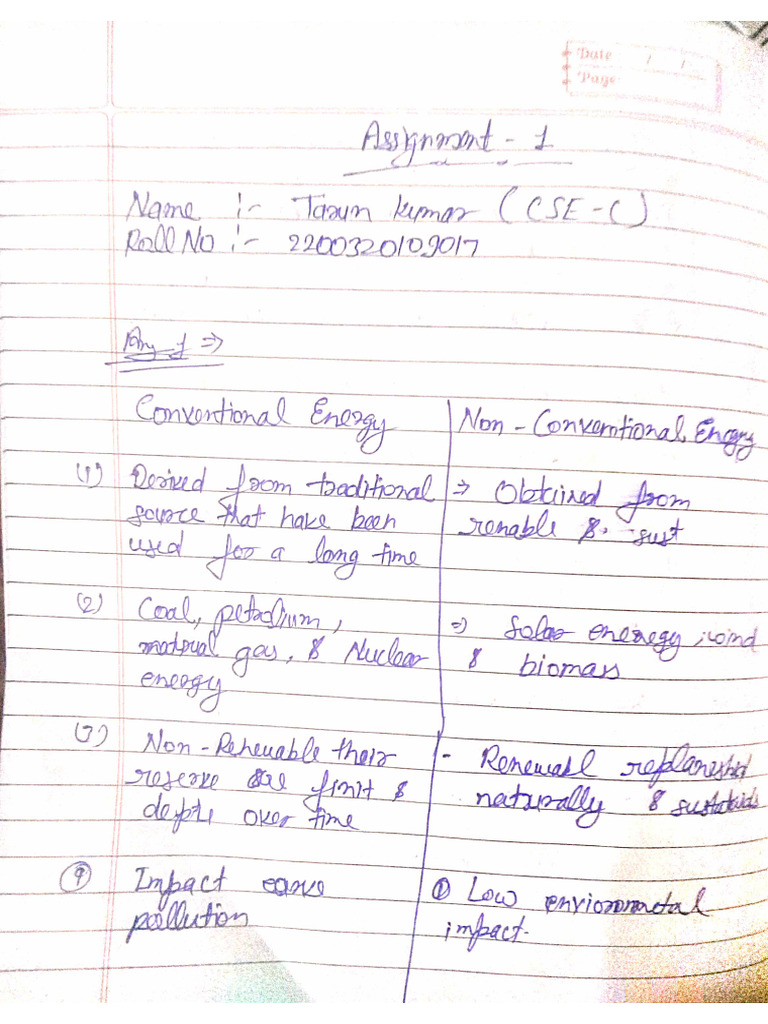 Date / /
Page
Assignment - 1
Name :- Tarun Kumar (CSE-C)
Roll No :- 2200320109017
Ans-1 ⇒
Conventional Energy
Non-Conventional Energy
(1) Derived from traditional
source that have been
used for a long time
⇒ Obtained from
renable &. sust
(2) Coal, petrolium,
natural gas, & Nuclear
energy
⇒ Solar enenegy, wind
& biomass
(3) Non-Renewable their
reserve are finit &
deplt over time
- Renewabl
naturally &
(4) Impact
pollution
① Low environmetal
impact.